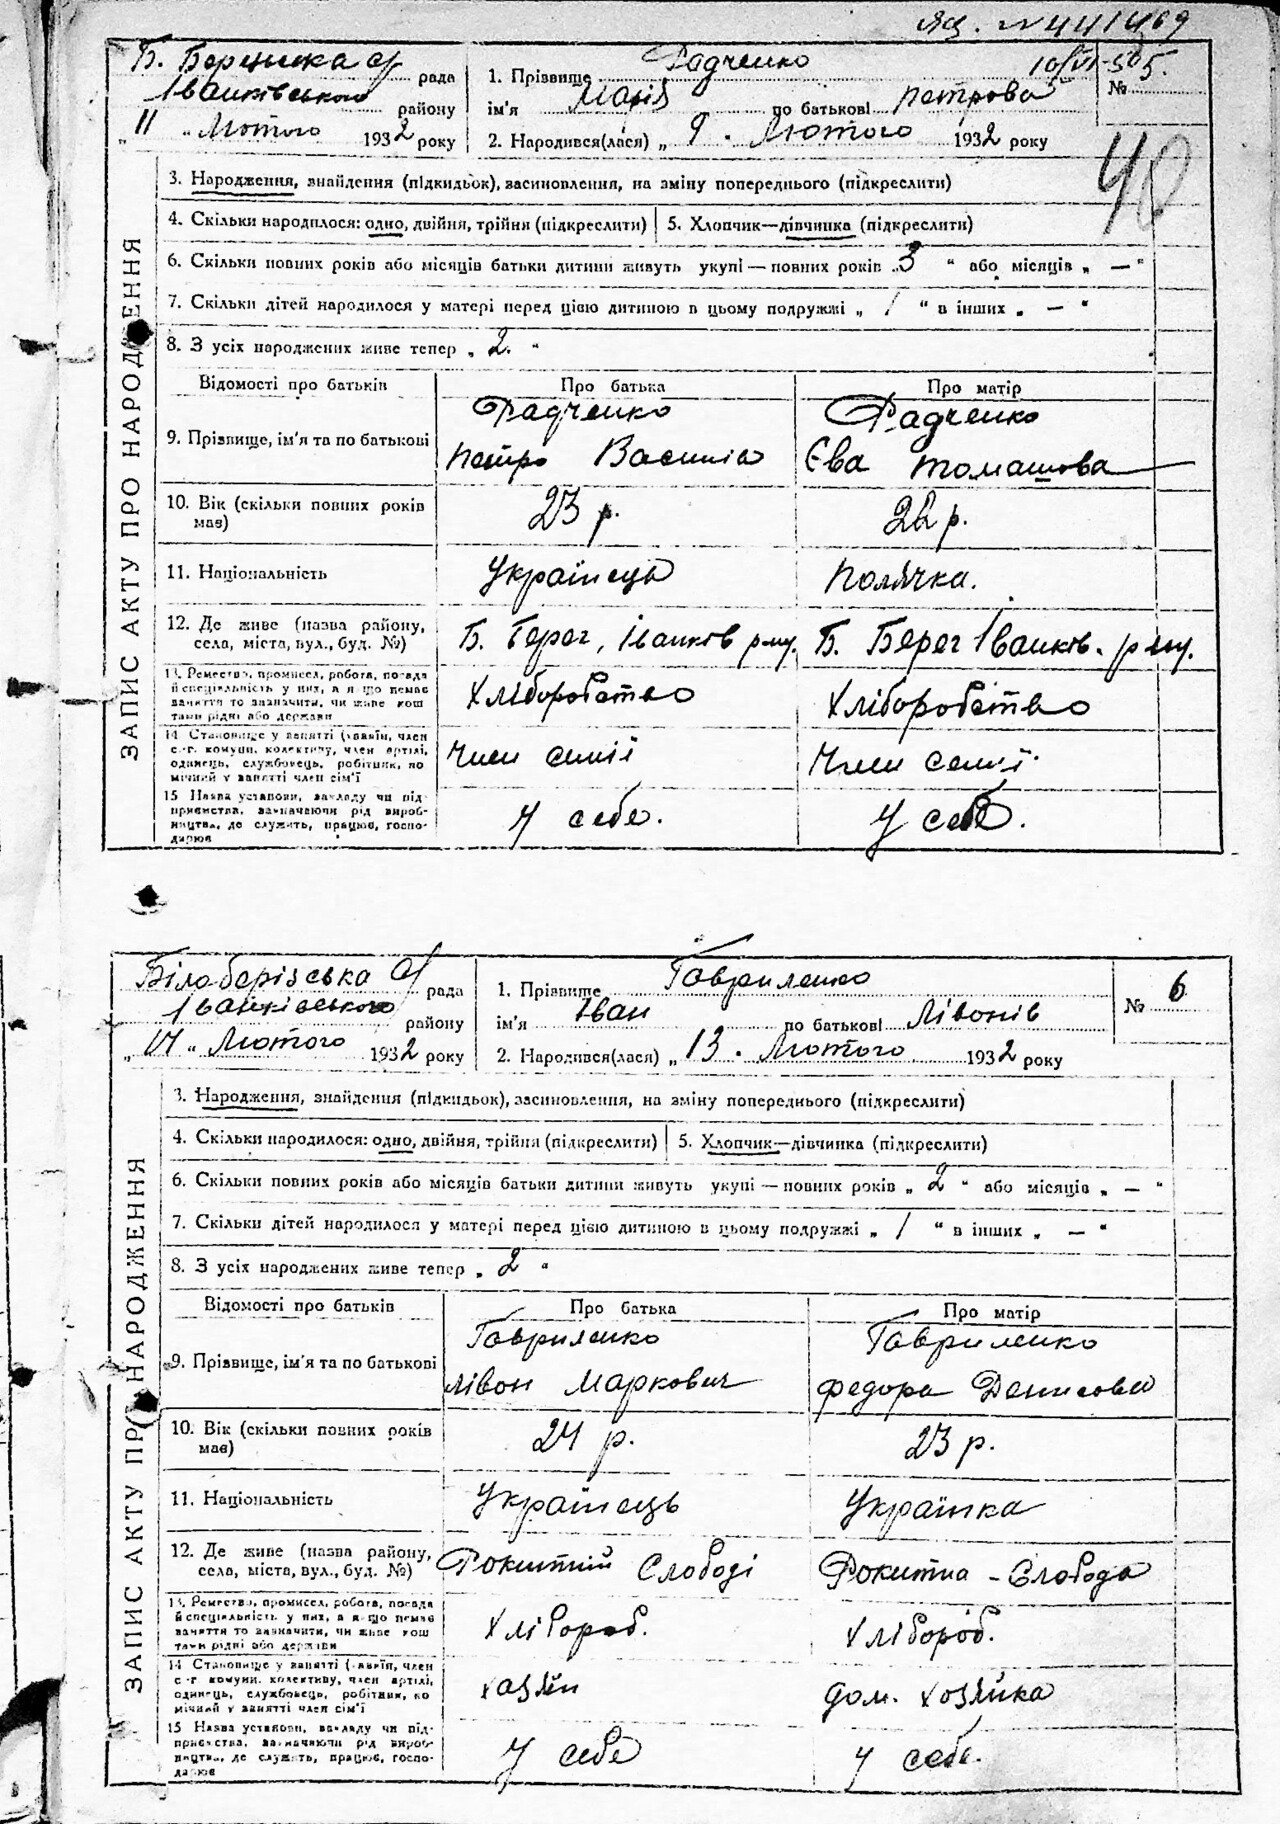 Б. Березька с/ рада
Іванківського району
„ 11 „ Лютого 1932 року
1. Прізвище Радченко
ім'я Марія по батькові Петрова
2. Народився(лася) „ 9 . Лютого 1932 року
№ 5.
40
ЗАПИС АКТУ ПРО НАРОДЖЕННЯ
3. Народження, знайдення (підкидьок), засиновлення, на зміну попереднього (підкреслити)
4. Скільки народилося: одно, двійня, трійня (підкреслити) 5. Хлопчик—дівчинка (підкреслити)
6. Скільки повних років або місяців батьки дитини живуть укупі — повних років „ 3 “ або місяців „ — “
7. Скільки дітей народилося у матері перед цією дитиною в цьому подружжі „ 1 “ в інших „ — “
8. З усіх народжених живе тепер „ 2. “
Відомості про батьків Про батька Про матір
9. Прізвище, ім'я та по батькові
Радченко Петро Василів
Радченко Єва Томашова
10. Вік (скільки повних років має) 23 р. 22 р.
11. Національність Українець Полячка.
12. Де живе (назва району, села, міста, вул., буд. №)
Б. Берег, Іванків рну. Б. Берег Іванків. рну.
13. Ремество, промисел, робота, посада й спеціяльність у них, а якщо немає заняття то зазначити, чи живе кош тами рідні або держави
Хліборобство Хліборобство
14 Становище у занятті (хазяїн, член с.-г. комуни, колективу, член артілі, одинець, службовець, робітник, по мічний у занятті член сім'ї
Член семії Член семії.
15 Назва установи, закладу чи під- приємства, зазначаючи рід вироб- ництва, де служить, працює, госпо- дарює
У себе. У себе.
Білоберізська с/ рада
Іванківського району
„ 14 “ Лютого 1932 року
1. Прізвище Гавриленко
ім'я Іван по батькові Лівонів
2. Народився(лася) „ 13 . Лютого 1932 року
№ 6
ЗАПИС АКТУ ПРО НАРОДЖЕННЯ
3. Народження, знайдення (підкидьок), засиновлення, на зміну попереднього (підкреслити)
4. Скільки народилося: одно, двійня, трійня (підкреслити) 5. Хлопчик—дівчинка (підкреслити)
6. Скільки повних років або місяців батьки дитини живуть укупі — повних років „ 2 “ або місяців „ — “
7. Скільки дітей народилося у матері перед цією дитиною в цьому подружжі „ 1 “ в інших „ — “
8. З усіх народжених живе тепер „ 2 “
Відомості про батьків Про батька Про матір
9. Прізвище, ім'я та по батькові
Гавриленко Лівон Маркович
Гавриленко Федора Денисова
10. Вік (скільки повних років має) 24 р. 23 р.
11. Національність Українець Українка
12. Де живе (назва району, села, міста, вул., буд. №)
Рокитній Слободі Рокитна - Слобода
13. Ремество, промисел, робота, посада й спеціяльність у них, а якщо немає заняття то зазначити, чи живе кош тами рідні або держави
Хлібороб. Хлібороб.
14 Становище у занятті (хазяїн, член с.-г. комуни, колективу, член артілі, одинець, службовець, робітник, по мічний у занятті член сім'ї
хазяїн дом. хозяйка
15 Назва установи, закладу чи під- приємства, зазначаючи рід вироб- ництва, де служить, працює, госпо- дарює
У себе У себе.